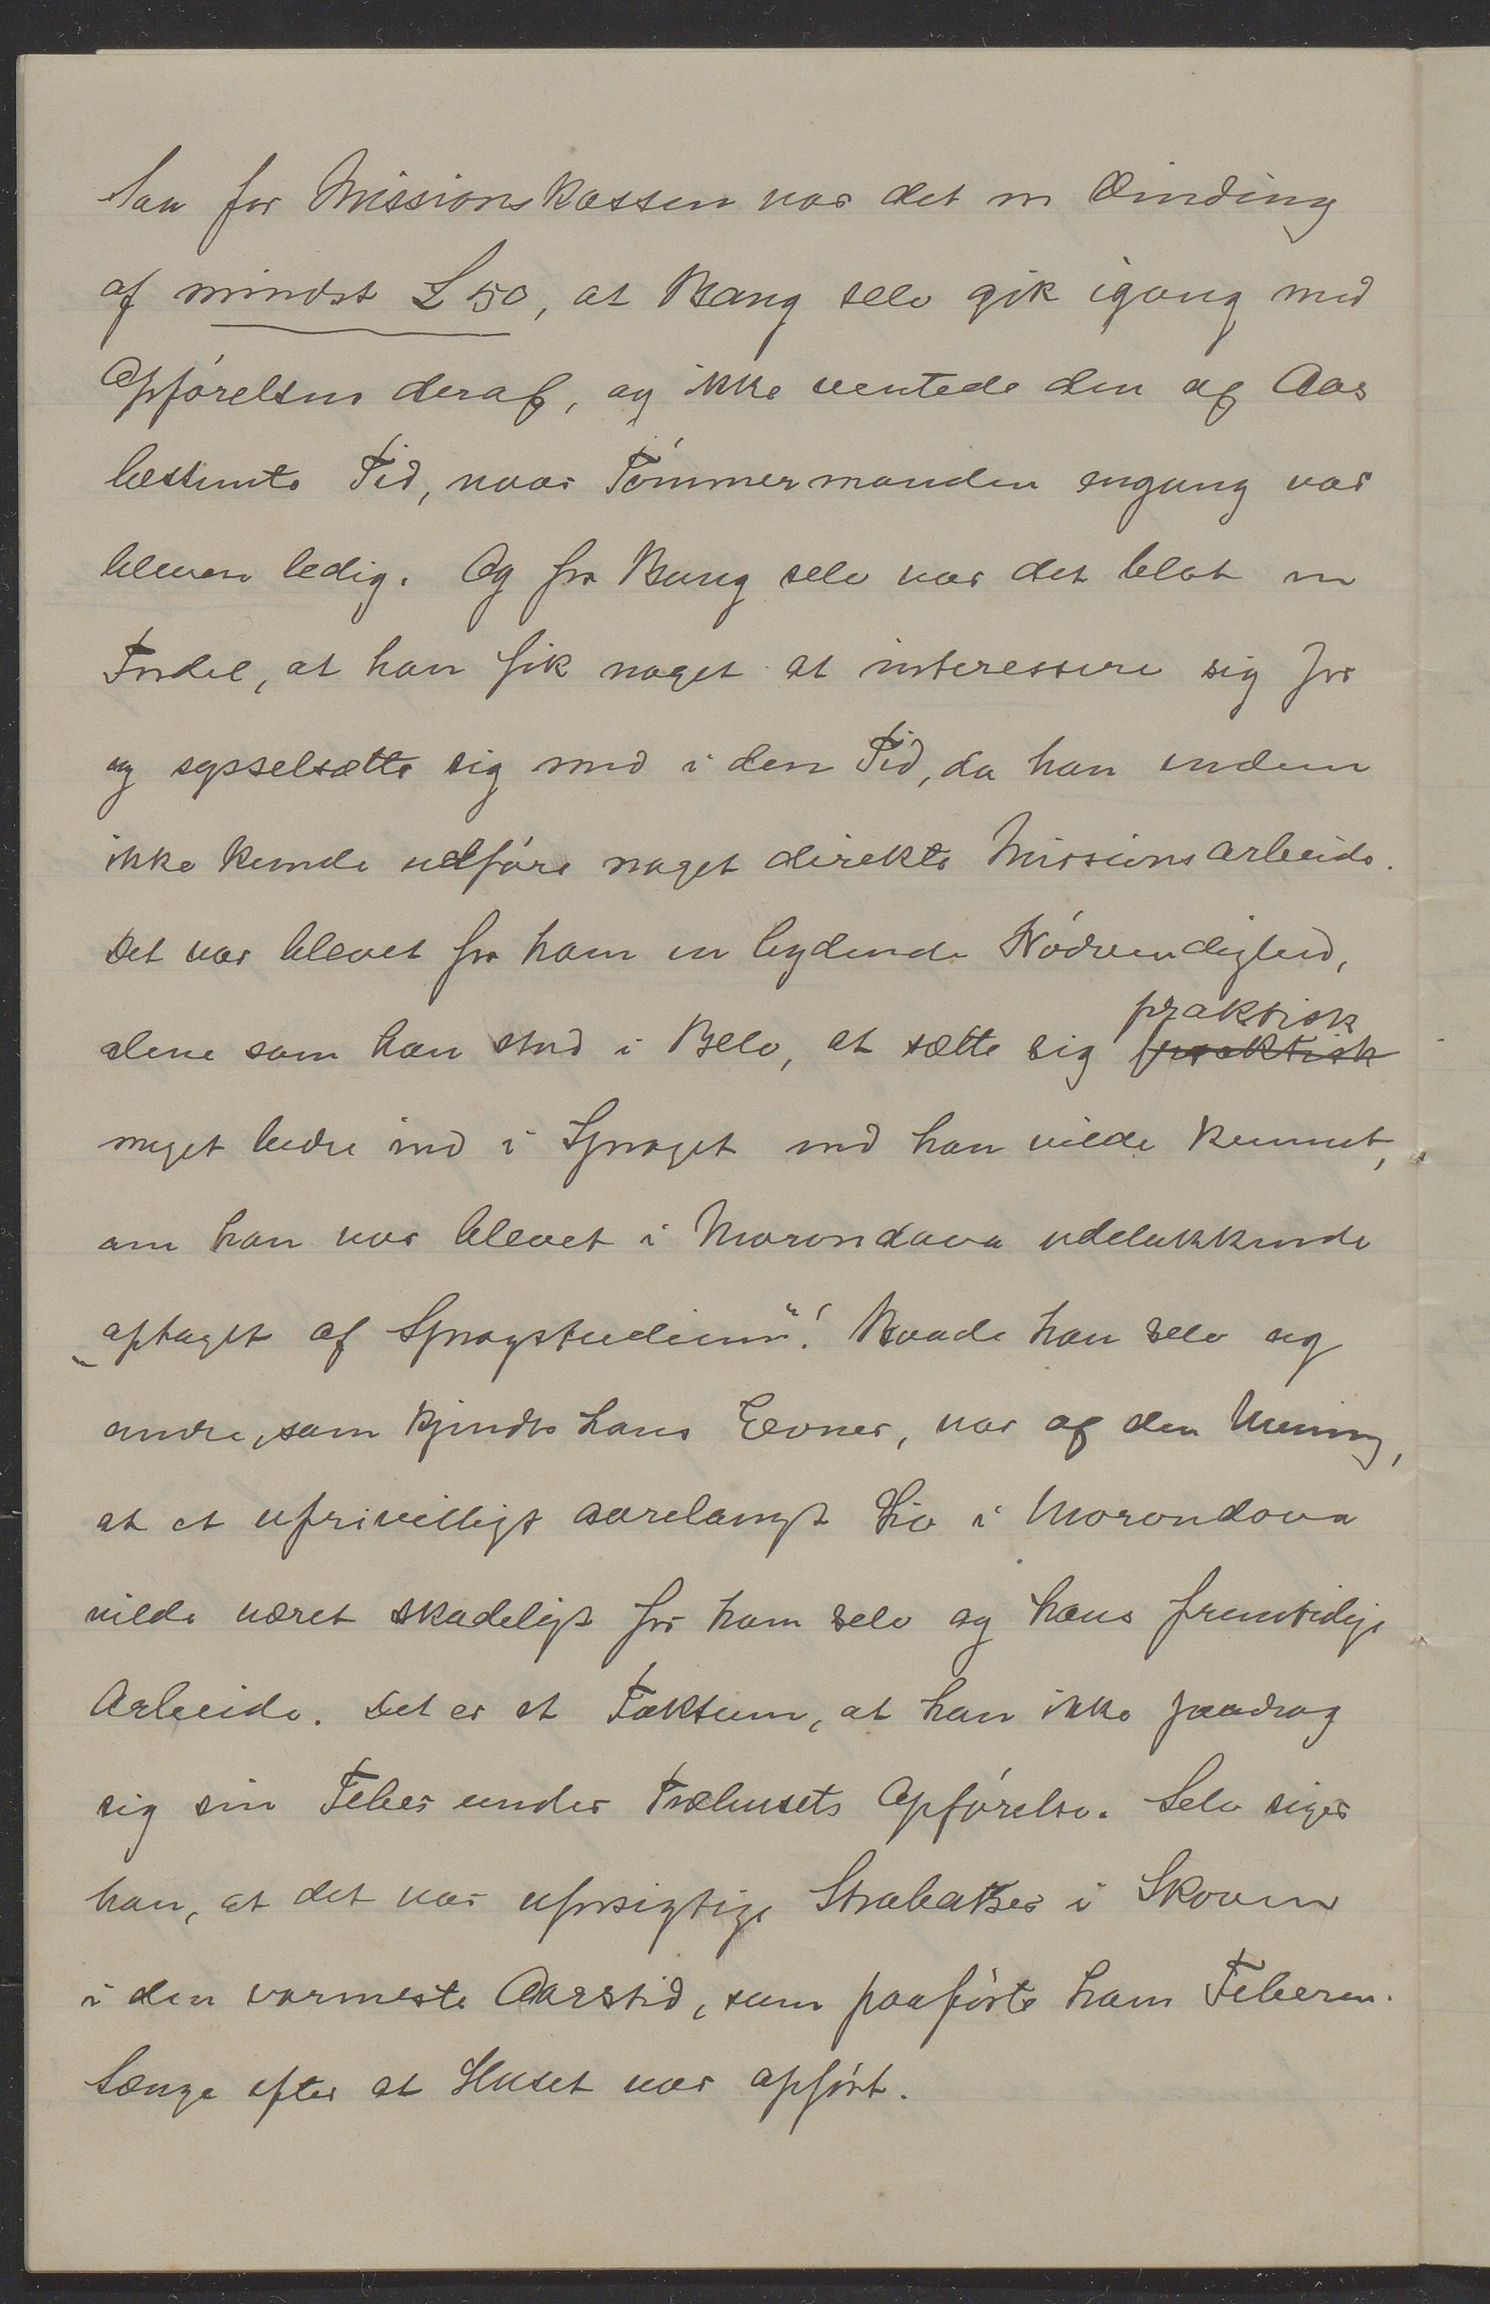 Saa for Missionskassen var det en Vinding
af mindst £ 50, at Bang selv gik igang med
Opførelsen deraf, og ikke ventede den af Aas
bestemte Tid, naar Tømmermanden engang var
bleven ledig. Og for Bang selv var det blot en
Fordel, at han fik noget at interessere sig for
og sysselsætte sig med i den Tid, da han endem
ikke kunde udføre noget direkte Missionsarbeide.
Det var blevet for ham en bydende Nødvendighed,
alene som han stod i Belo, at sætte sig praktisk praktisk
meget bedre ind i Sproget end han vilde kunnet,
om han var blevet i Morondava udelukkende
„optaget af Sprogstudium“! Baade han selv og
andre, som kjendte hans Evner, var af den Mening,
at et ufrivilligt aarelangt Liv i Morondava
vilde været skadeligt for ham selv og hans fremtidige
Arbeide. Det er et Faktum, at han ikke paadrog
sig sin Feber under Træhusets Opførelse. Selv siger
han, at det var uforsigtige Strabatser i Skoven
i den varmeste Aarstid, som paaførte ham Feberen.
Længe efter at Huset var opført.